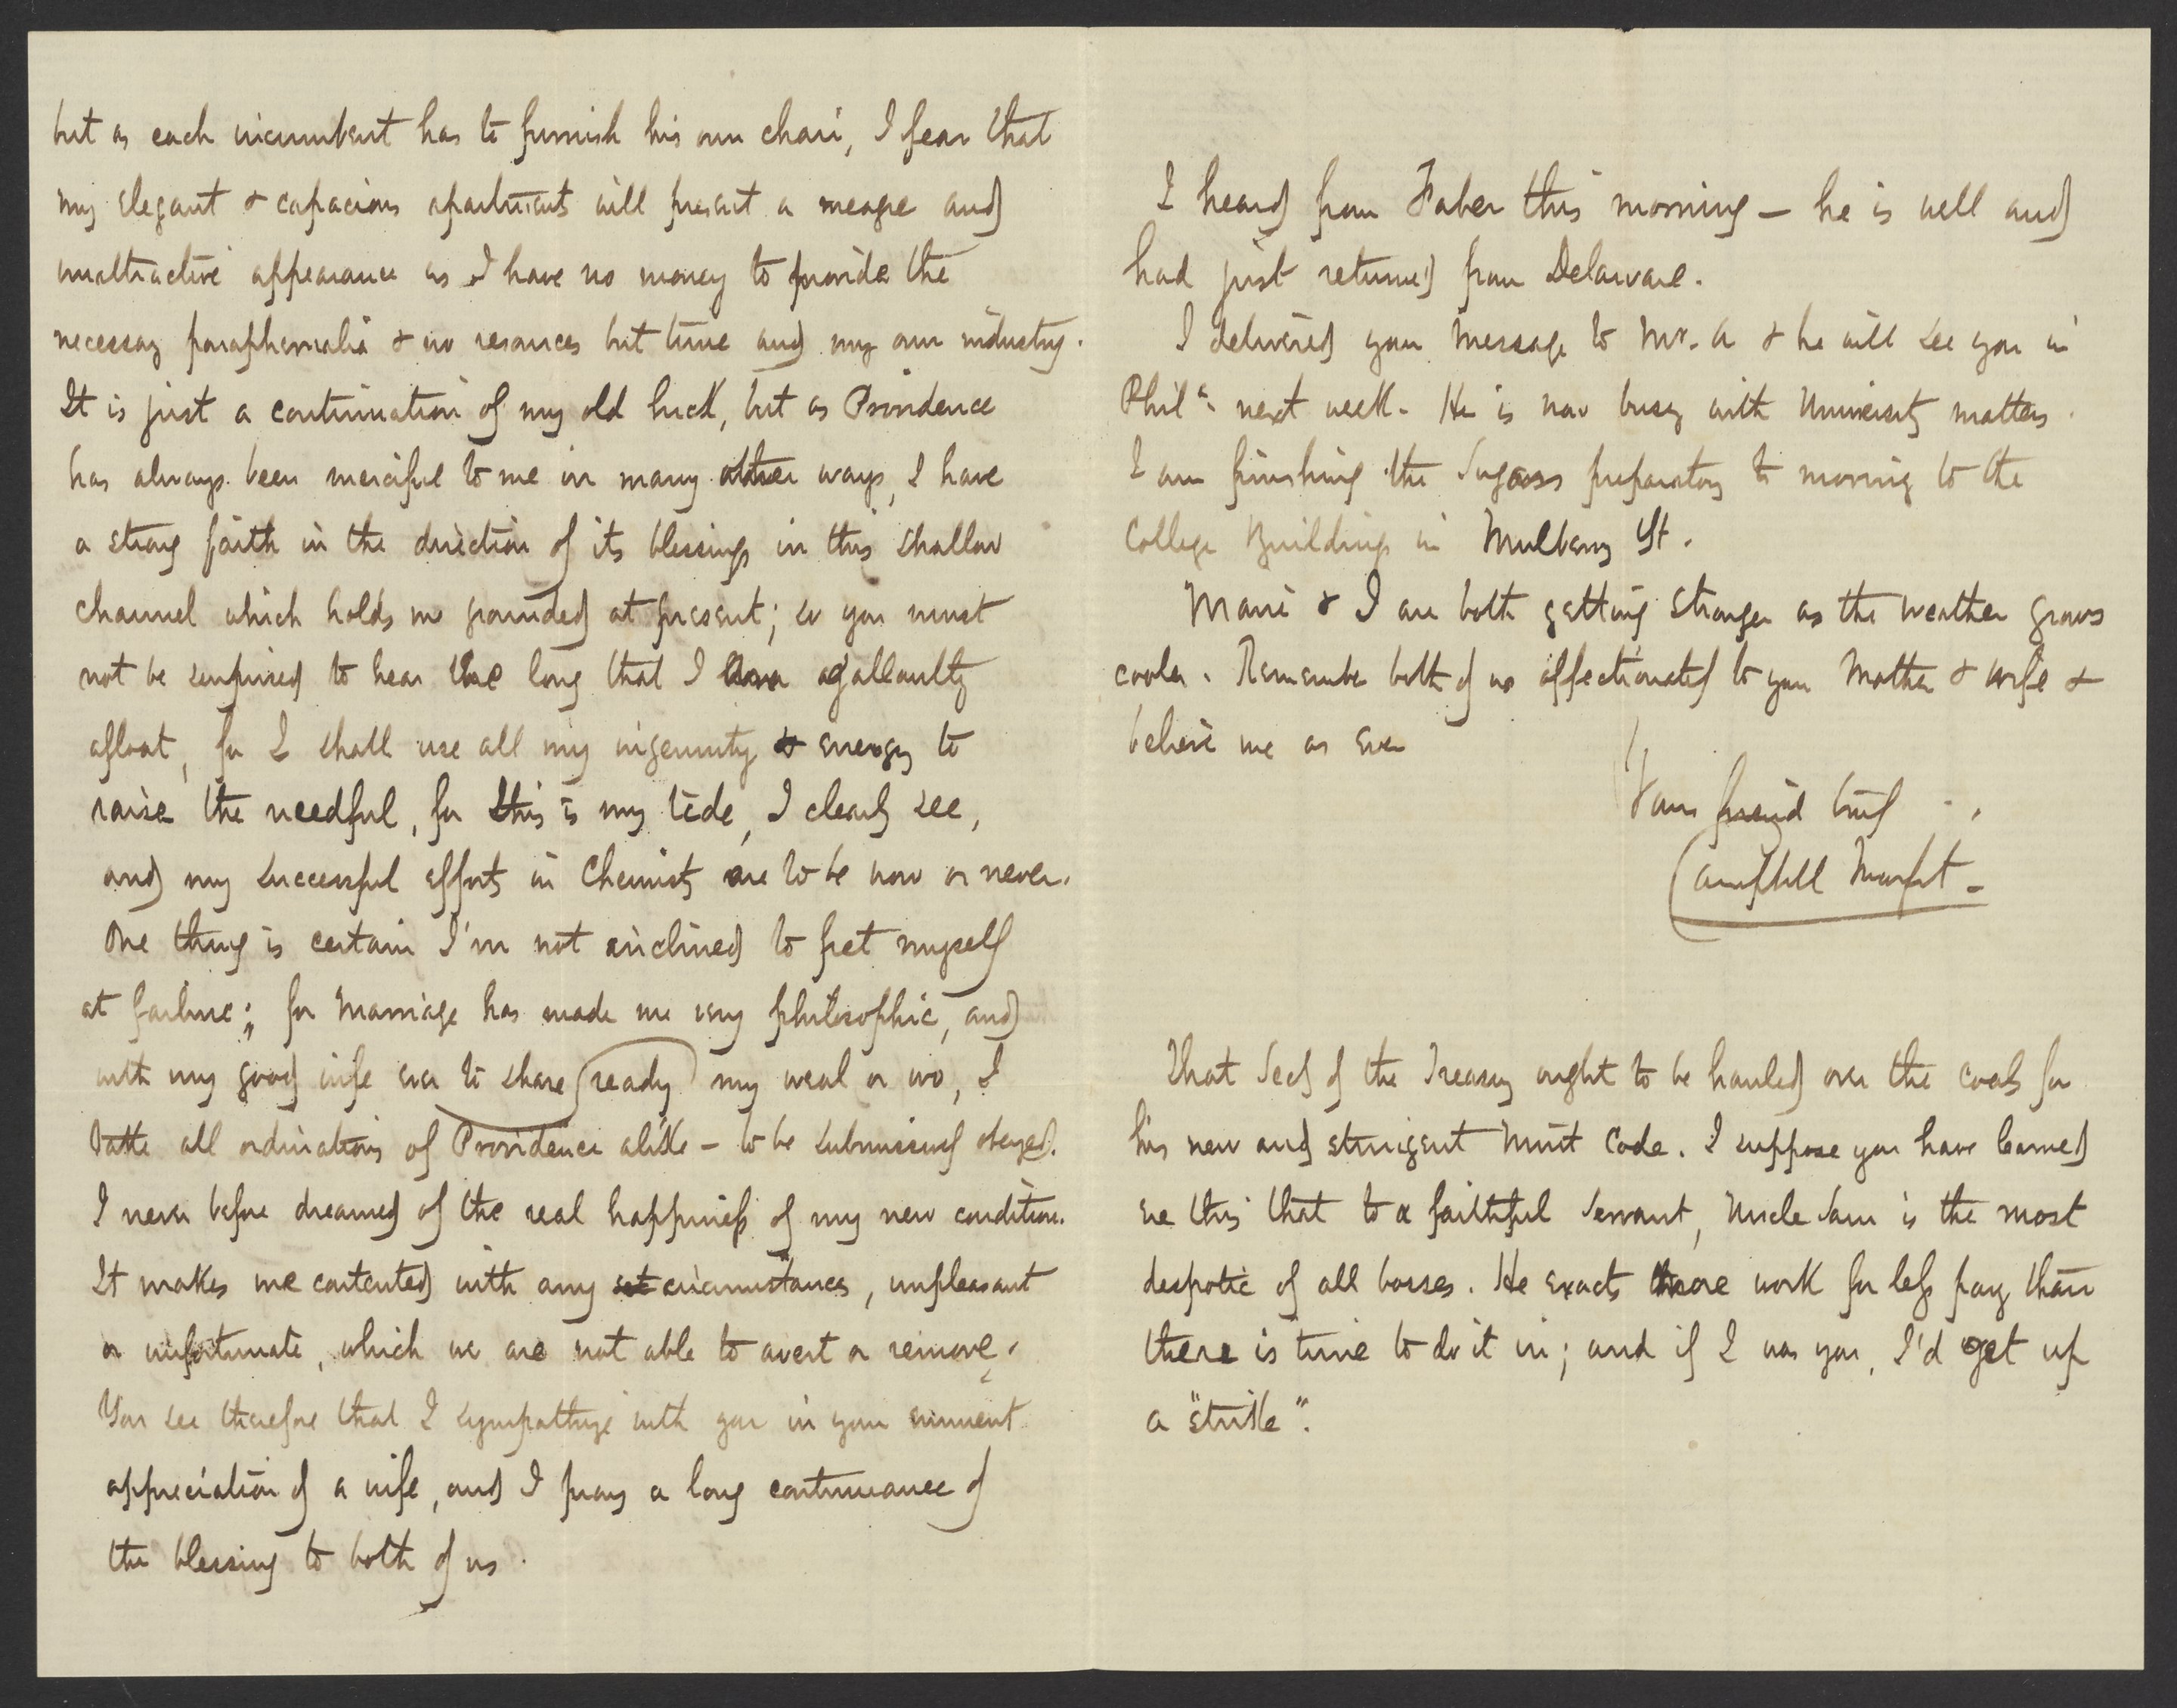 but as each incumbent has to furnish his own chair, I fear that
my elegant & capacious apartments will present a meagre and
unattractive appearance as I have no money to provide the
necessary paraphernalia & no resources but time and my own industry.
It is just a continuation of my old luck, but as Providence
has always been merciful to me in many other ways, I have
a strong faith in the direction of its blessings in this shallow
channel which holds me grounded at present; so you must
not be surprised to hear ere long that I am gallantly
afloat, for I shall use all my ingenuity & energy to
raise the needful, for this is my tide, I clearly see,
and my successful efforts in Chemistry are to be now or never.
One thing is certain I'm not inclined to fret myself
at failure; for marriage has made me very philosophic, and
with my good wife ever to share ready my weal or wo, I
take all ordinations of Providence alike – to be submissively obeyed.
I never before dreamed of the real happiness of my new condition.
It makes me contented with any circumstances, unpleasant
or unfortunate, which we are not able to avert or remove.
You see therefore that I sympathize with you in your eminent
appreciation of a wife, and I pray a long continuance of
the blessing to both of us.
I heard from Faber this morning – he is well and
had just returned from Delaware.
I delivered your message to Mr. A & he will see you in
Phila. next week. He is now busy with University matters.
I am finishing the Sugars preparatory to moving to the
College Buildings in Mulberry St.
Marie & I are both getting stronger as the weather grows
cooler. Remember both of us affectionately to your Mother & wife &
believe me as ever
Your friend truly
Campbell Morfit –
That Secy of the Treasury ought to be hauled over the coals for
his new and stringent Mint Code. I suppose you have learned
ere this that to a faithful servant, Uncle Sam is the most
despotic of all bosses. He exacts more work for less pay than
there is time to do it in; and if I was you, I'd get up
a "strike".